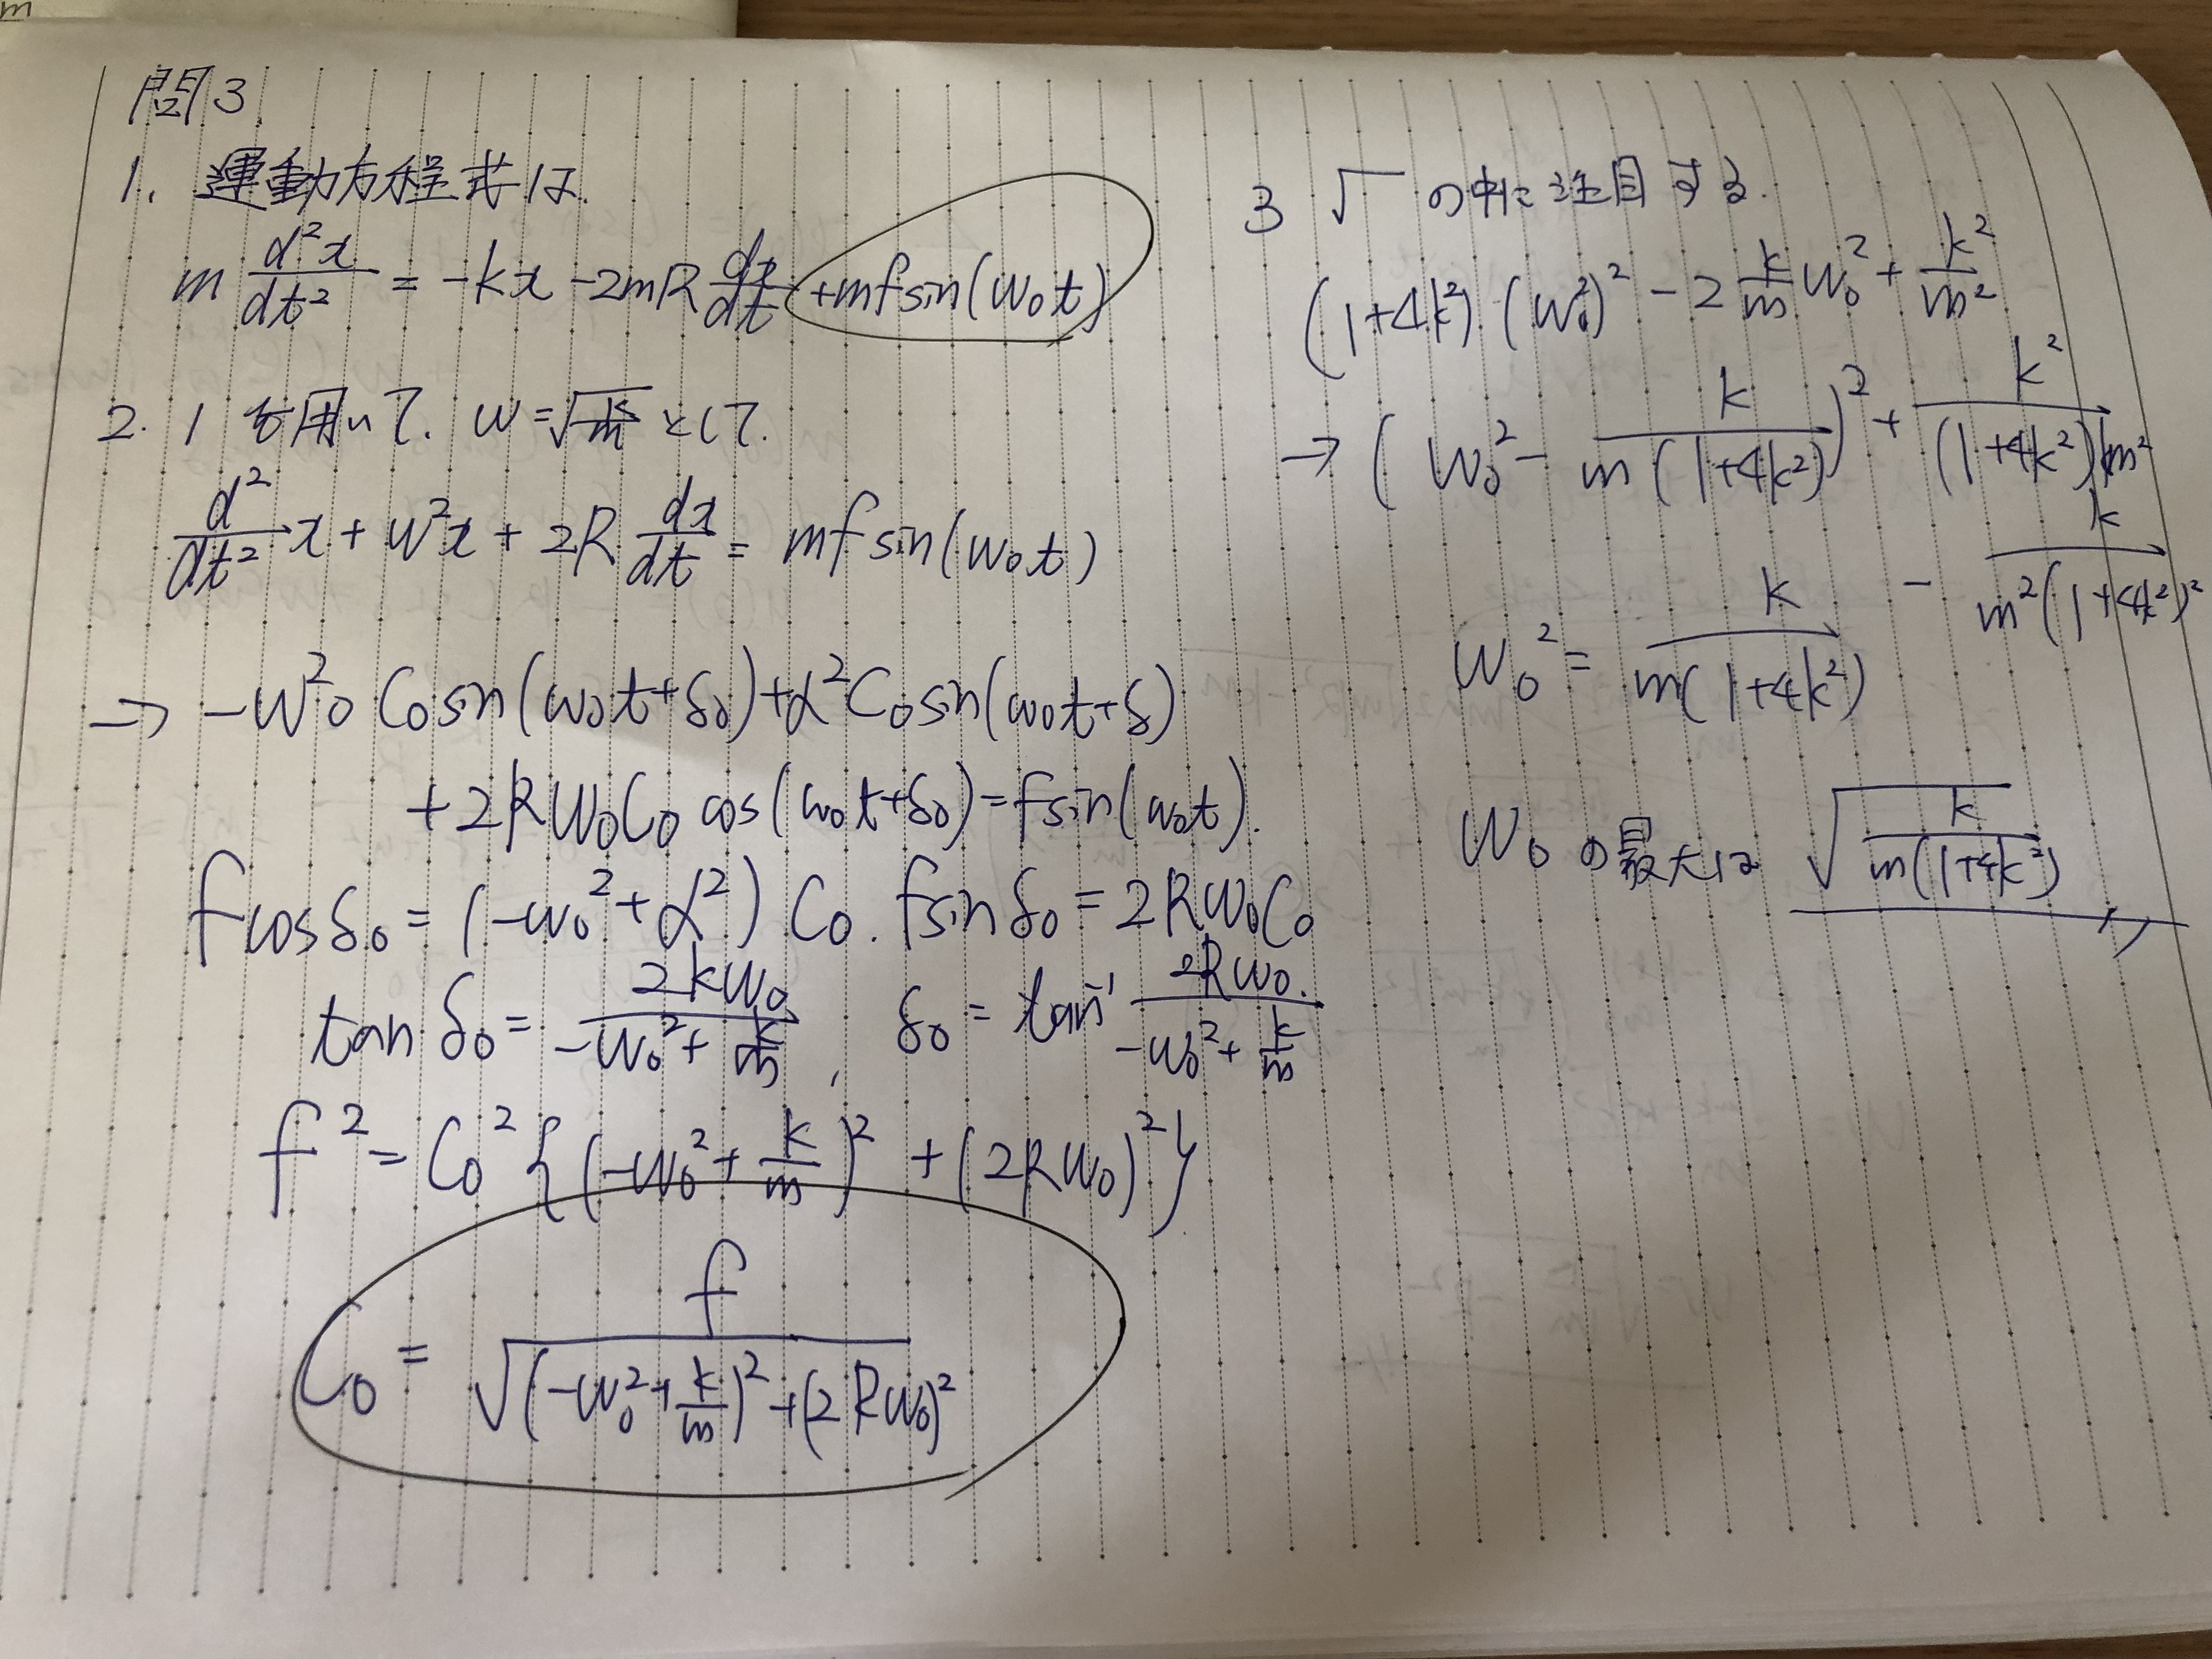 m
問3
1. 運動方程式は.
m d²x/dt² = -kx -2mR dx/dt +mf sin(ω₀t)
2. 1を用いて. ω=√(k/m) として.
d²/dt² x + ω²x + 2R dx/dt = mf sin(ω₀t)
→ -ω²₀ C₀ sin(ω₀t+δ₀)+α²C₀ sin(ω₀t+δ)
+2Rω₀C₀ cos(ω₀t+δ₀)=f sin(ω₀t).
f cosδ₀ = (-ω₀²+α²) C₀. f sin δ₀ = 2Rω₀C₀
tan δ₀ = 2kω₀/(-ω₀²+k/m), δ₀ = tan⁻¹ 2Rω₀./(-ω₀²+k/m)
f² = C₀² {(-ω₀²+k/m)² + (2Rω₀)²}
C₀ = f/√((-ω₀²+k/m)²+(2Rω₀)²)
3 √ の中に注目する.
(1+4k²) (ω₀²)² - 2 k/m ω₀² + k²/m²
→ (ω₀² - k/(m(1+4k²)))² + k²/((1+4k²)m²)
- k/(m²(1+4k²)²)
ω₀² = k/(m(1+4k²))
ω₀の最大は √(k/(m(1+4k²)))